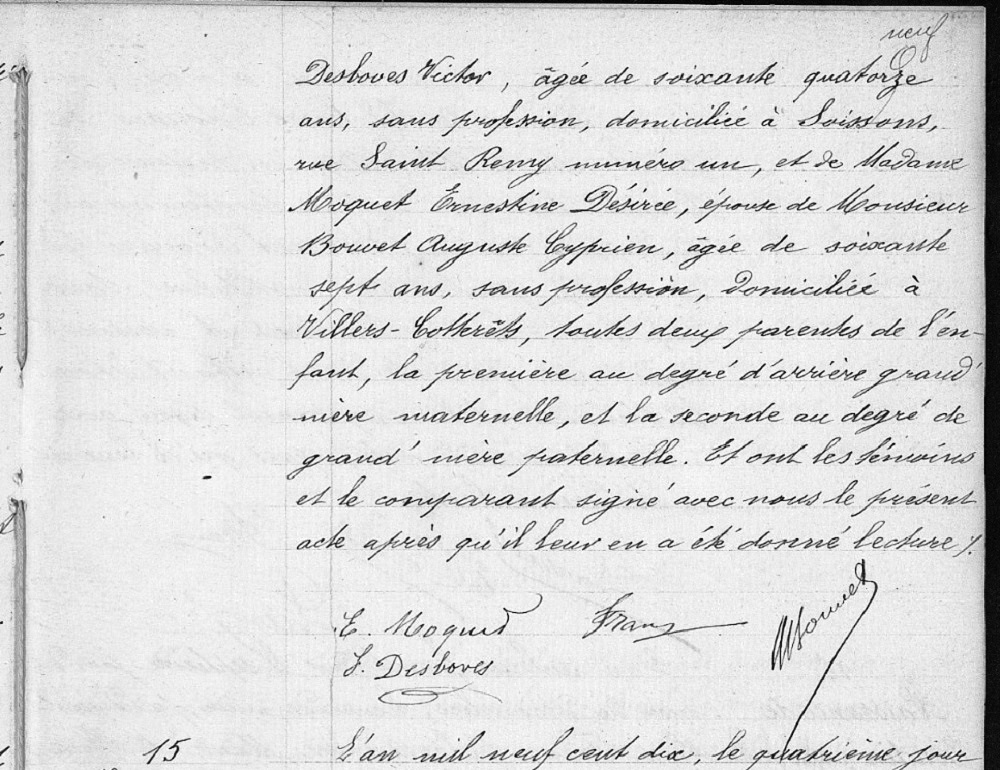 neuf
Desboves Victor, âgée de soixante quatorze
ans, sans profession, domiciliée à Soissons,
rue Saint Remy numéro un, et de Madame
Moquet Ernestine Désirée, épouse de Monsieur
Bouvet Auguste Cyprien, âgée de soixante
sept ans, sans profession, domiciliée à
Villers-Cotterêts, toutes deux parentes de l'en-
fant, la première au degré d'arrière grand'
mère maternelle, et la seconde au degré de
grand' mère paternelle. Et ont les témoins
et le comparant signé avec nous le présent
acte après qu'il leur en a été donné lecture /.
E. Moquet
Desboves
15 L'an mil neuf cent dix, le quatrième jour